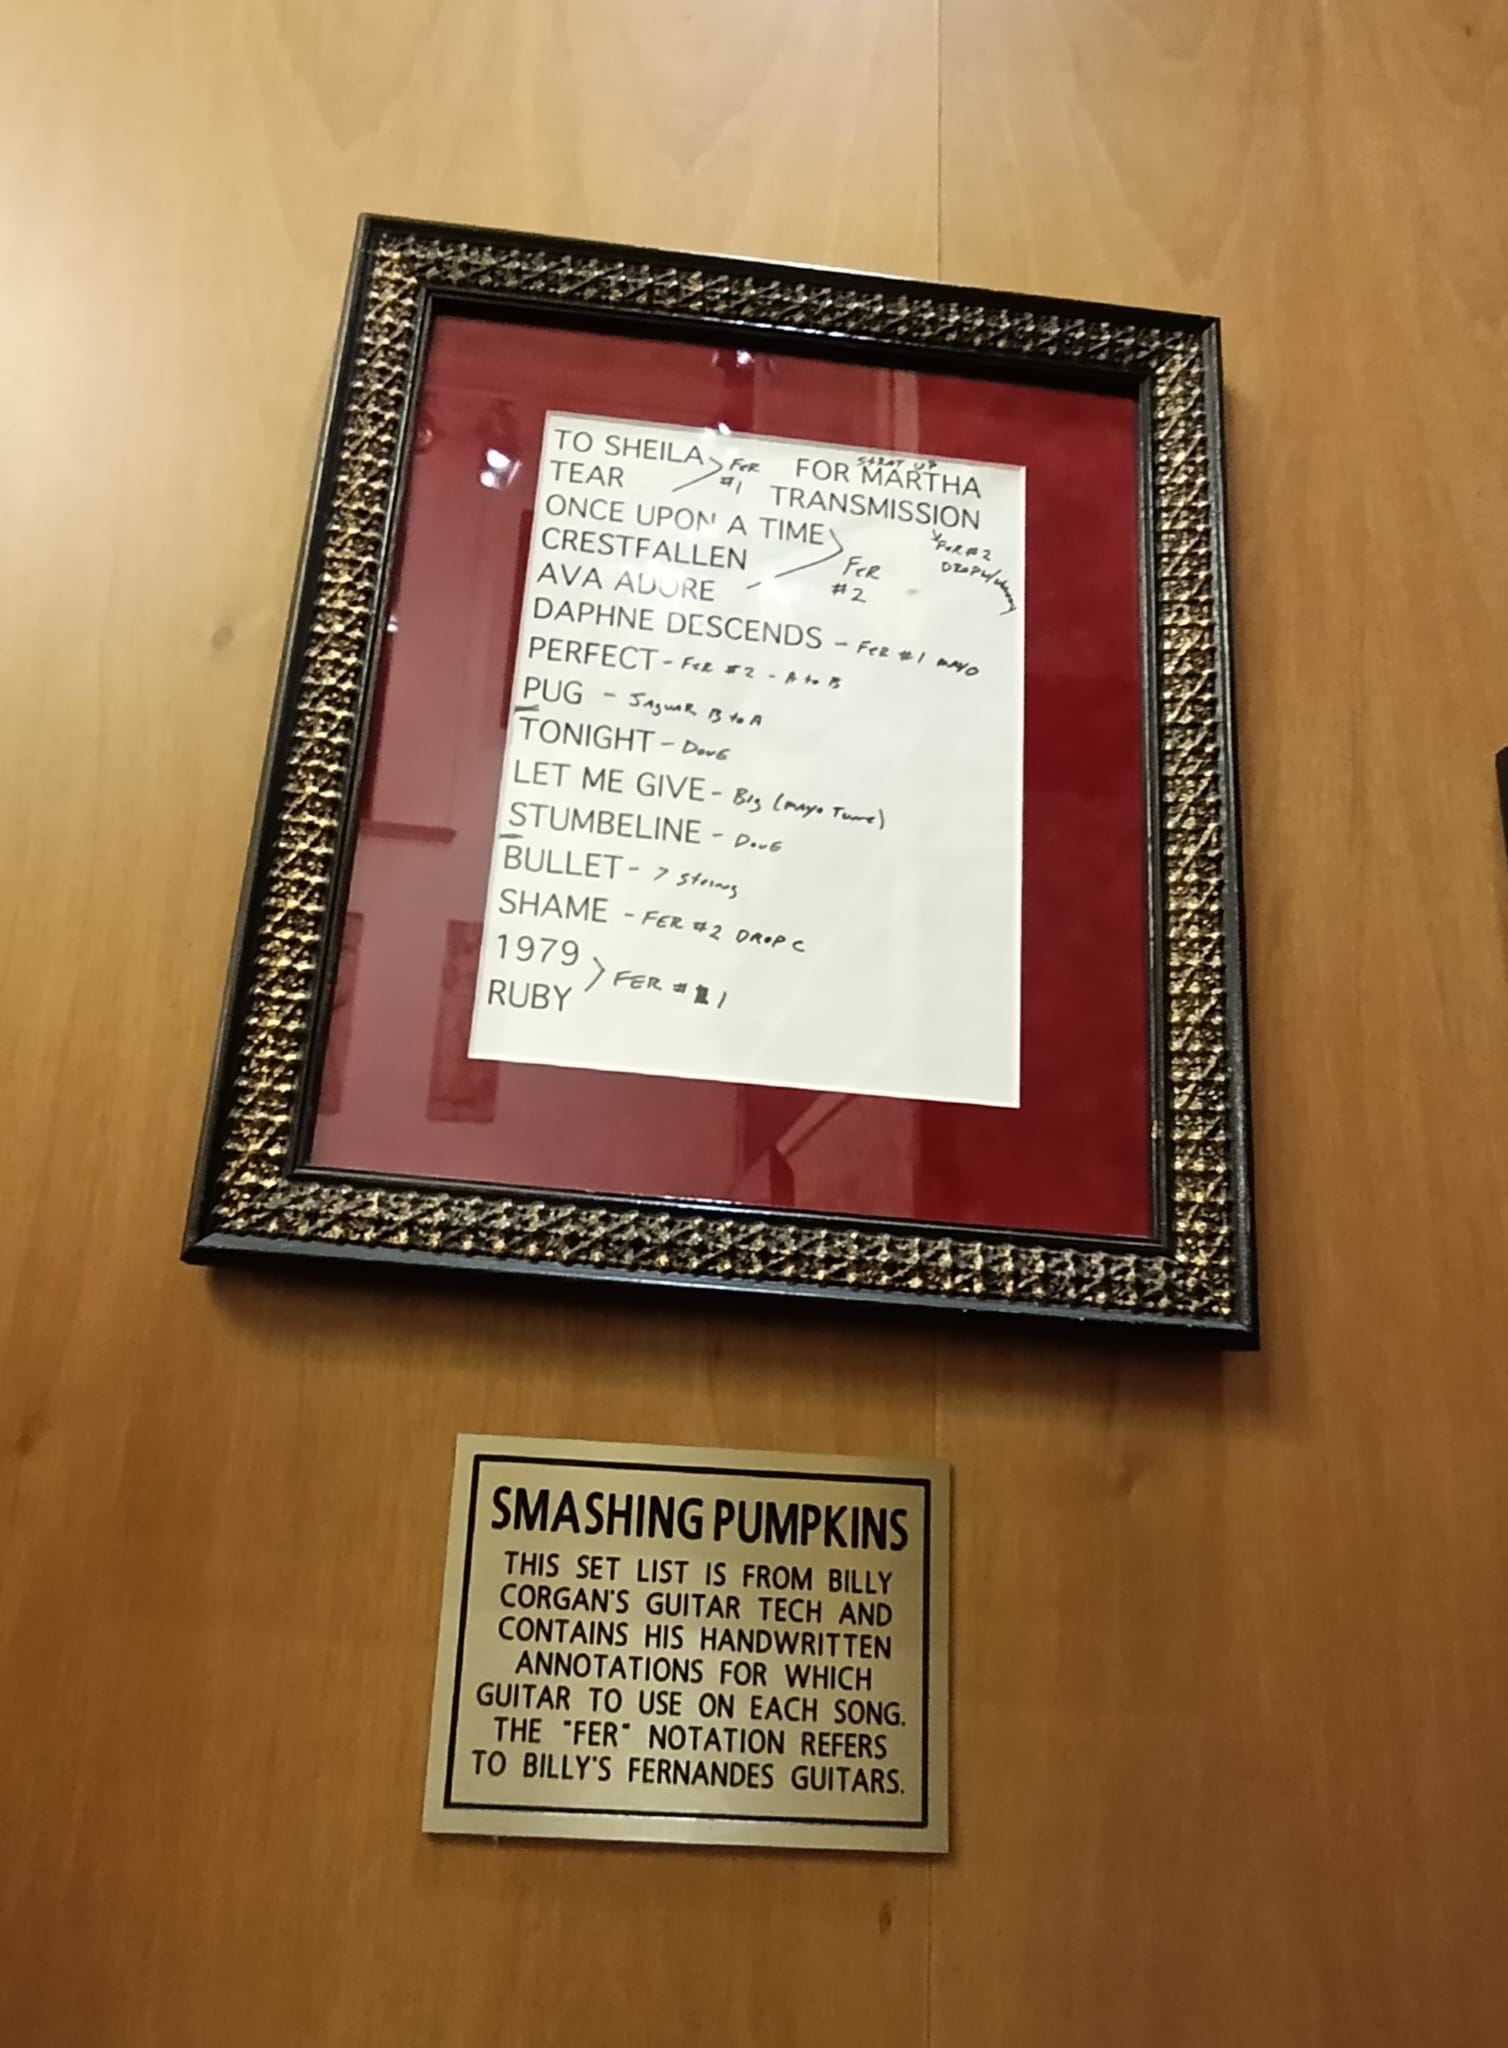 TO SHEILA
TEAR
FER
#1
ONCE UPON A TIME
CRESTFALLEN
AVA ADORE
FER
#2
DAPHNE DESCENDS - FER #1 MAYO
PERFECT - FER #2 - A to B
PUG - JAGUAR B to A
TONIGHT - DOUG
LET ME GIVE - BIG (MAYO TUNE)
STUMBELINE - DOUG
BULLET - 7 STRING
SHAME - FER #2 DROP C
1979
RUBY
FER # 1
STRAT UP
FOR MARTHA
TRANSMISSION
FER #2
DROP
SMASHING PUMPKINS
THIS SET LIST IS FROM BILLY
CORGAN'S GUITAR TECH AND
CONTAINS HIS HANDWRITTEN
ANNOTATIONS FOR WHICH
GUITAR TO USE ON EACH SONG.
THE "FER" NOTATION REFERS
TO BILLY'S FERNANDES GUITARS.